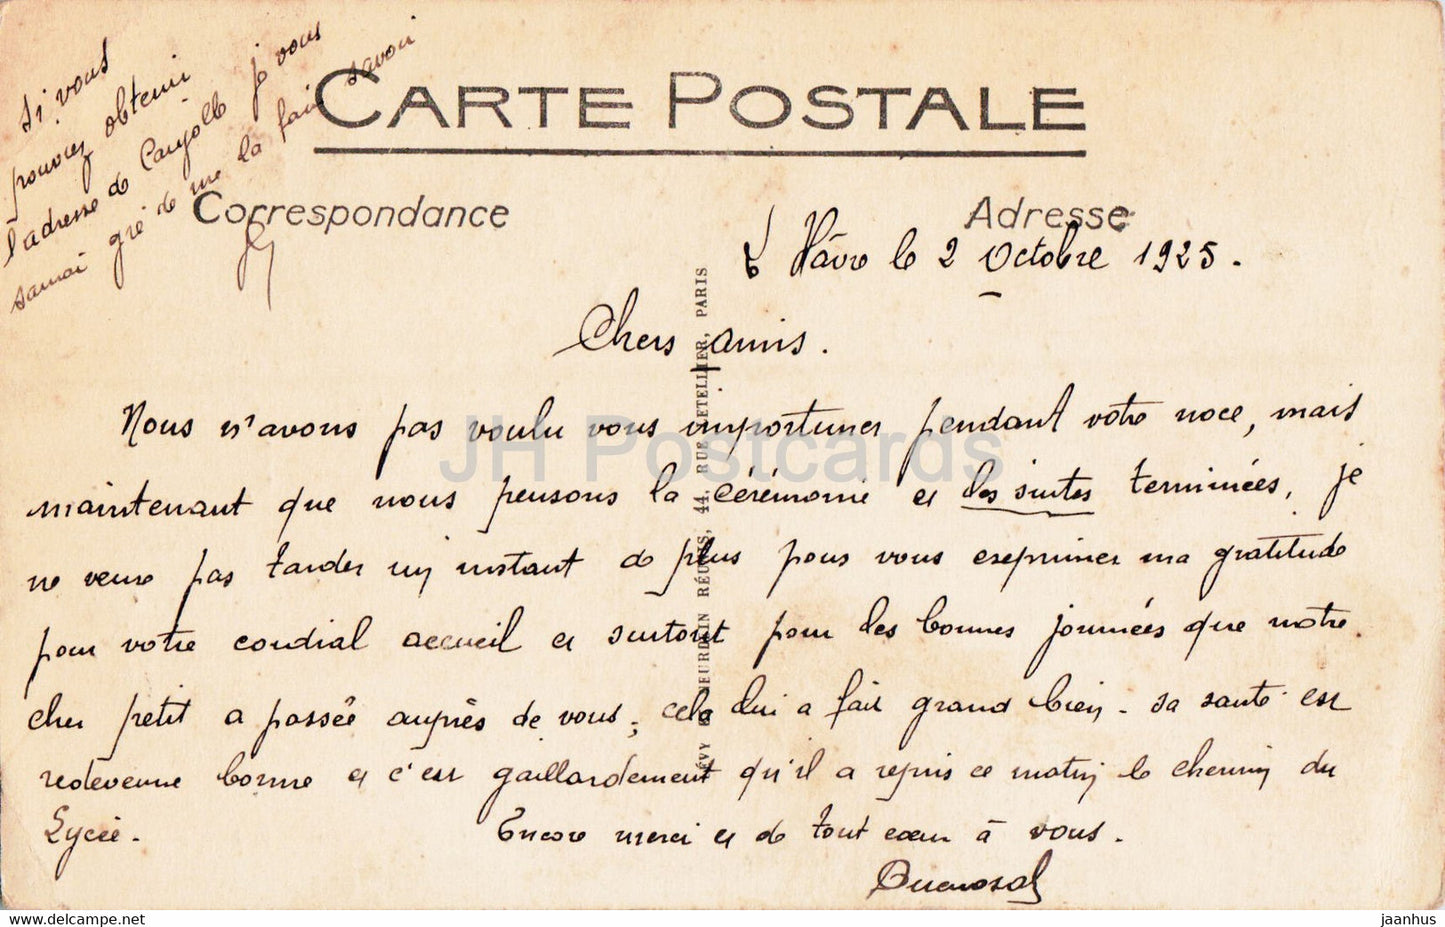 si vous
pouvez obtenir
l'adresse de Cayolle je vous
saurai gré de me la faire savoir
CARTE POSTALE
Correspondance
Adresse
Hâvre le 2 Octobre 1925.
Chers amis.
Nous n'avons pas voulu vous importuner pendant votre noce, mais
maintenant que nous pensons la cérémonie et les suites terminées, je
ne veux pas tarder un instant de plus pour vous exprimer ma gratitude
pour votre cordial accueil et surtout pour les bonnes journées que notre
cher petit a passée auprès de vous; cela lui a fait grand bien. Sa santé est
redevenue bonne et c'est gaillardement qu'il a repris ce matin le chemin du
Lycée. Encore merci et de tout cœur à vous.
LÉVY ET NEURDEIN RÉUNIS, 44, RUE LETELLIER, PARIS
JH Postcards
jaanhus